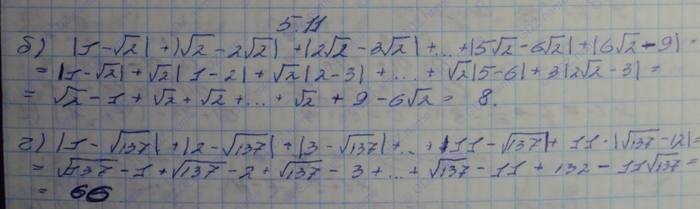 5.11
б) |1-√2| + |√2 - 2√2| + |2√2 - 3√2| + ... + |5√2 - 6√2| + |6√2 - 9| =
= |1-√2| + √2|1-2| + √2|2-3| + ... + √2|5-6| + 3|2√2 - 3| =
= √2 - 1 + √2 + √2 + ... + √2 + 9 - 6√2 = 8.
г) |1 - √137| + |2 - √137| + |3 - √137| + ... + |11 - √137| + 11·|√137 - 12| =
= √137 - 1 + √137 - 2 + √137 - 3 + ... + √137 - 11 + 132 - 11√137 =
= 66